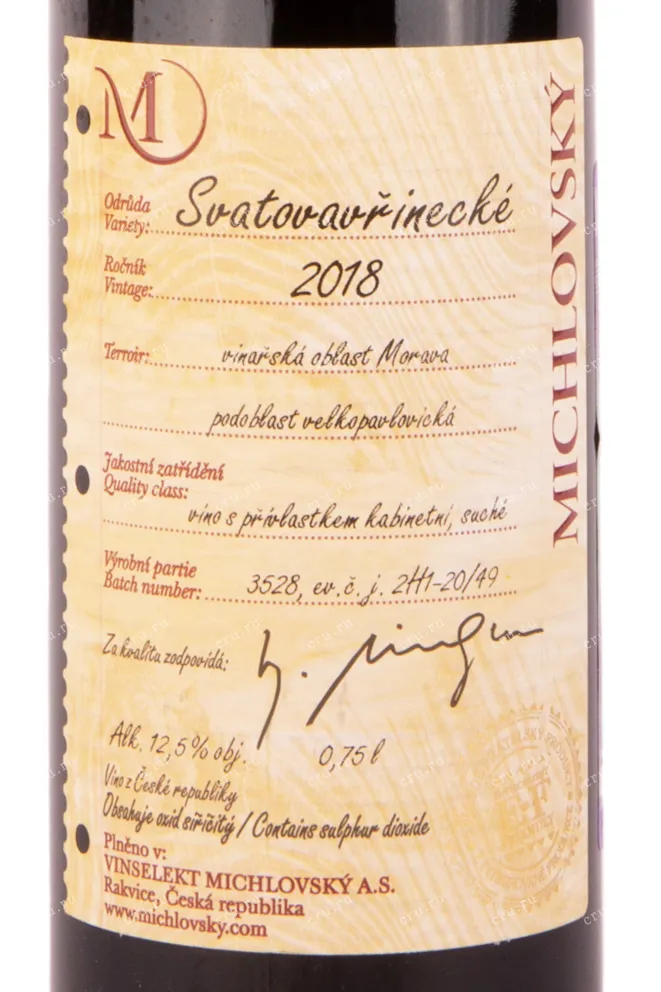 M
Odrůda
Variety: Svatovavřinecké
Ročník
Vintage: 2018
Terroir: vinařská oblast Morava
podoblast velkopavlovická
Jakostní zatřídění
Quality class:
víno s přívlastkem kabinetní, suché
Výrobní partie
Batch number: 3528, ev. č. j. 2H1-20/49
Za kvalitu zodpovídá:
Alk. 12,5% obj. 0,75 l
Víno z České republiky
Obsahuje oxid siřičitý / Contains sulphur dioxide
Plněno v:
VINSELEKT MICHLOVSKÝ A.S.
Rakvice, Česká republika
www.michlovský.com
MICHLOVSKÝ
cru.ru